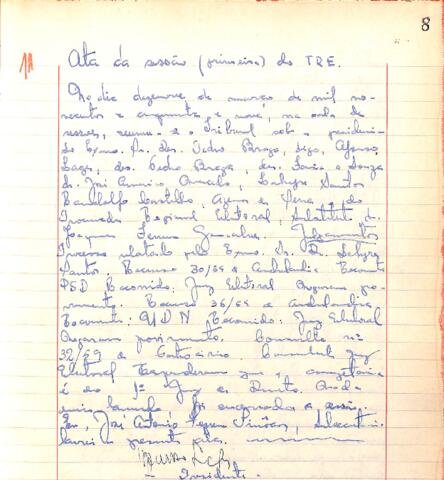 8
Ata da sessão (primeira) do TRE.
No dia dezenove de março de mil no-
vecentos e cinquenta e nove, na sala de
sessões, reuniu-se o Tribunal sob a presidencia
do Exmo. Sr. des. Pedro Braga, digo, Afonso
Lages, des. Pedro Braga, des. Faria e Souza
dr. José Americo Macedo, Dahyr Santos
Randolfo e do
Procurador Regional Eleitoral, Substituto dr.
Joaquim Ferreira Gonçalves. Julgamentos
Processo relatado pelo Exmo. Sr. Dr. Dahyr
Santos, Recurso 30/59 Recorrente
PSD Recorrido: Juiz Eleitoral Negaram pro-
vimento. Recurso 36/59
Recorrente: UDN Recorrido: Juiz Eleitoral
Negaram provimento. Consulta nº
32/59 Consulente Juiz
Eleitoral Responderam que a competência
é do 1º Juiz de Direito. Nada
mais havendo foi encerrada a sessão.
Eu, José Antônio Simões, Secretário
lavrei a presente ata.
Presidente.